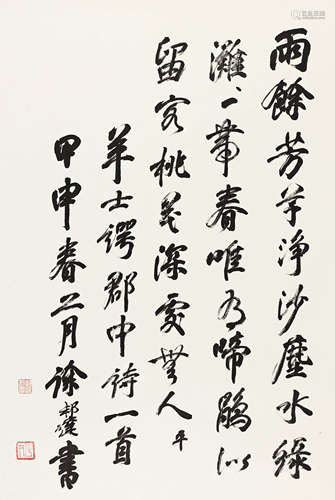 雨餘芳草淨沙塵水綠
灘、一帶春唯有啼鵑似
留客桃花深處無人平
羊士諤郡中詩一首
甲申春二月徐邦達書